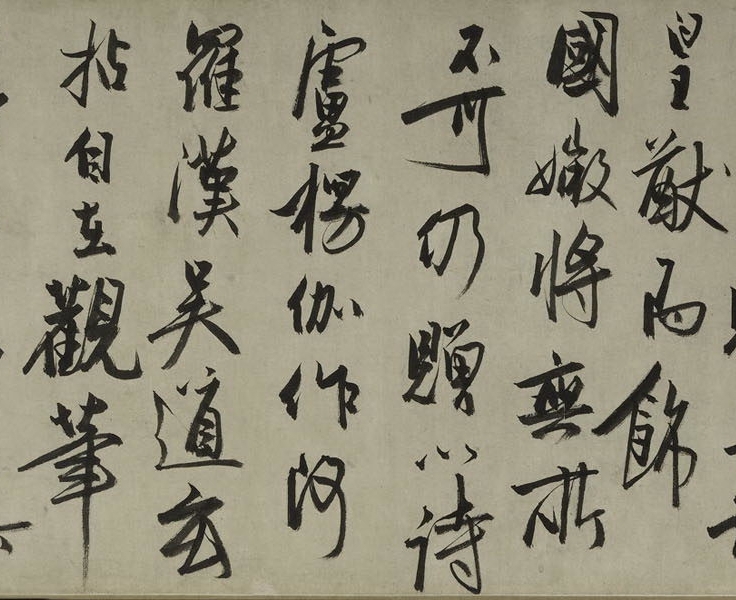 皇猷而飾
國媺將無所
不可仍贈以詩
盧楞伽作阿
羅漢吳道玄
拈自在觀筆